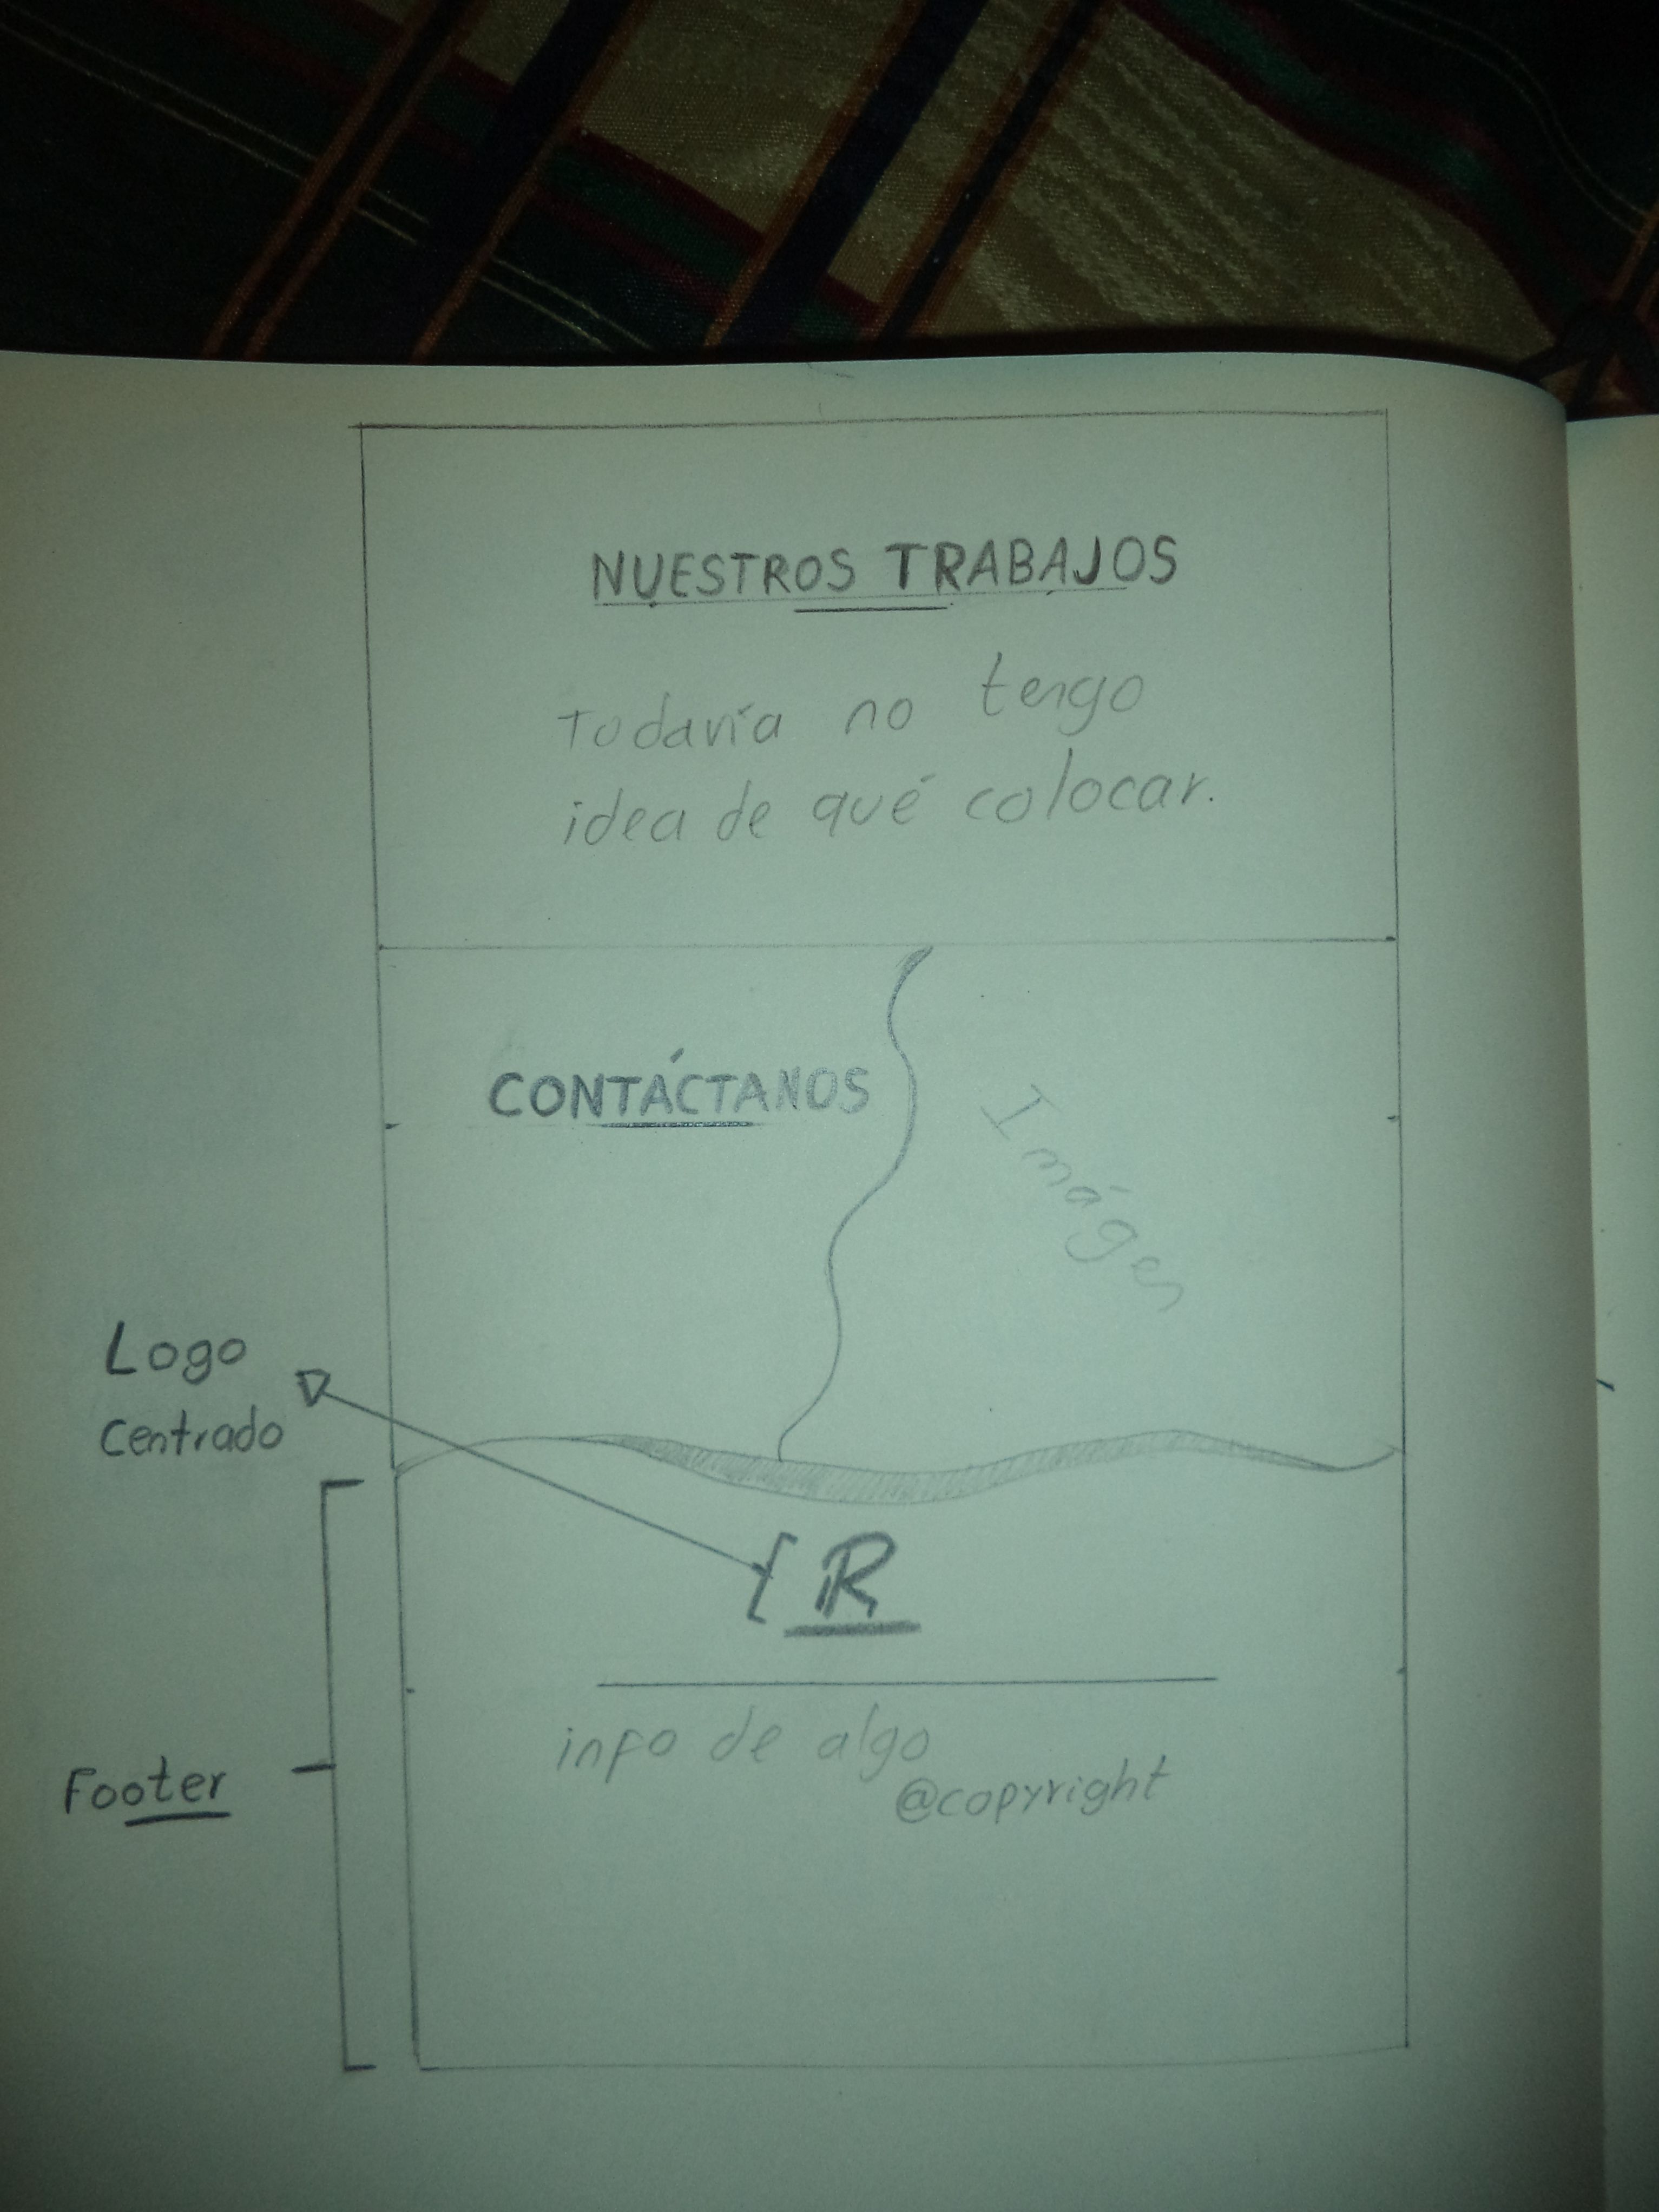 NUESTROS TRABAJOS
Todavía no tengo
idea de qué colocar.
CONTÁCTANOS
Imágen
Logo
Centrado
R
info de algo
@copyright
Footer